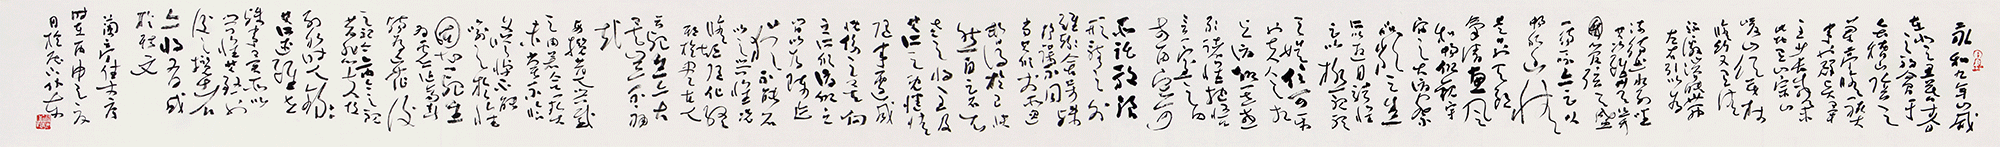 永和九年歲
在癸丑暮春
之初會于
會稽山陰之
蘭亭脩禊
事也群賢畢
至少長咸集
此地有崇山
峻領茂林
脩竹又有清
流激湍暎帶
左右引以為
流觴曲水列坐
其次雖無絲竹
管弦之盛
一觴一詠亦足以
暢敘幽情
是日也天朗
氣清惠風
和暢仰觀宇
宙之大俯察
品類之盛
所以遊目騁懷
足以極視聽
之娛信可樂
也夫人之相
與俯仰一世或
取諸懷抱悟言
一室之內
或因寄所
託放浪
形骸之外
雖趣舍萬殊
靜躁不同
當其欣於所遇
暫得於己快
然自足不
知老之將至及
其所之既惓情
隨事遷感
慨係之矣向
之所欣俛仰之
間以為陳迹
猶不能不
以之興懷況
脩短隨化終
期於盡古人
云死生亦大
矣豈不痛
哉
每攬昔人興感
之由若合一契
未嘗不臨
文嗟悼不能
喻之於懷
固知一死生
為虛誕齊彭
殤為妄作後
之視今亦由今之視
昔悲夫故
列敘時人錄
其所述雖世
殊事異所以
興懷其致一也
後之攬者
亦將有感
於斯文